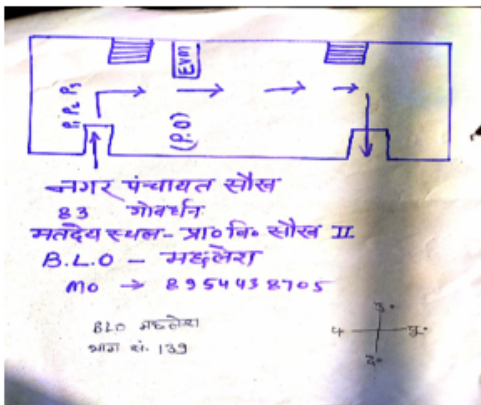 EVM
P₁ P₂ P₃
(P.O)
नगर पंचायत सौख
83 गोवर्धन
मतदेय स्थल - प्रा० वि० सौख II
B.L.O - मधलेश
MO → 8954438705
BLO मधलेश
भाग सं. 139
उ०
प पू०
द०